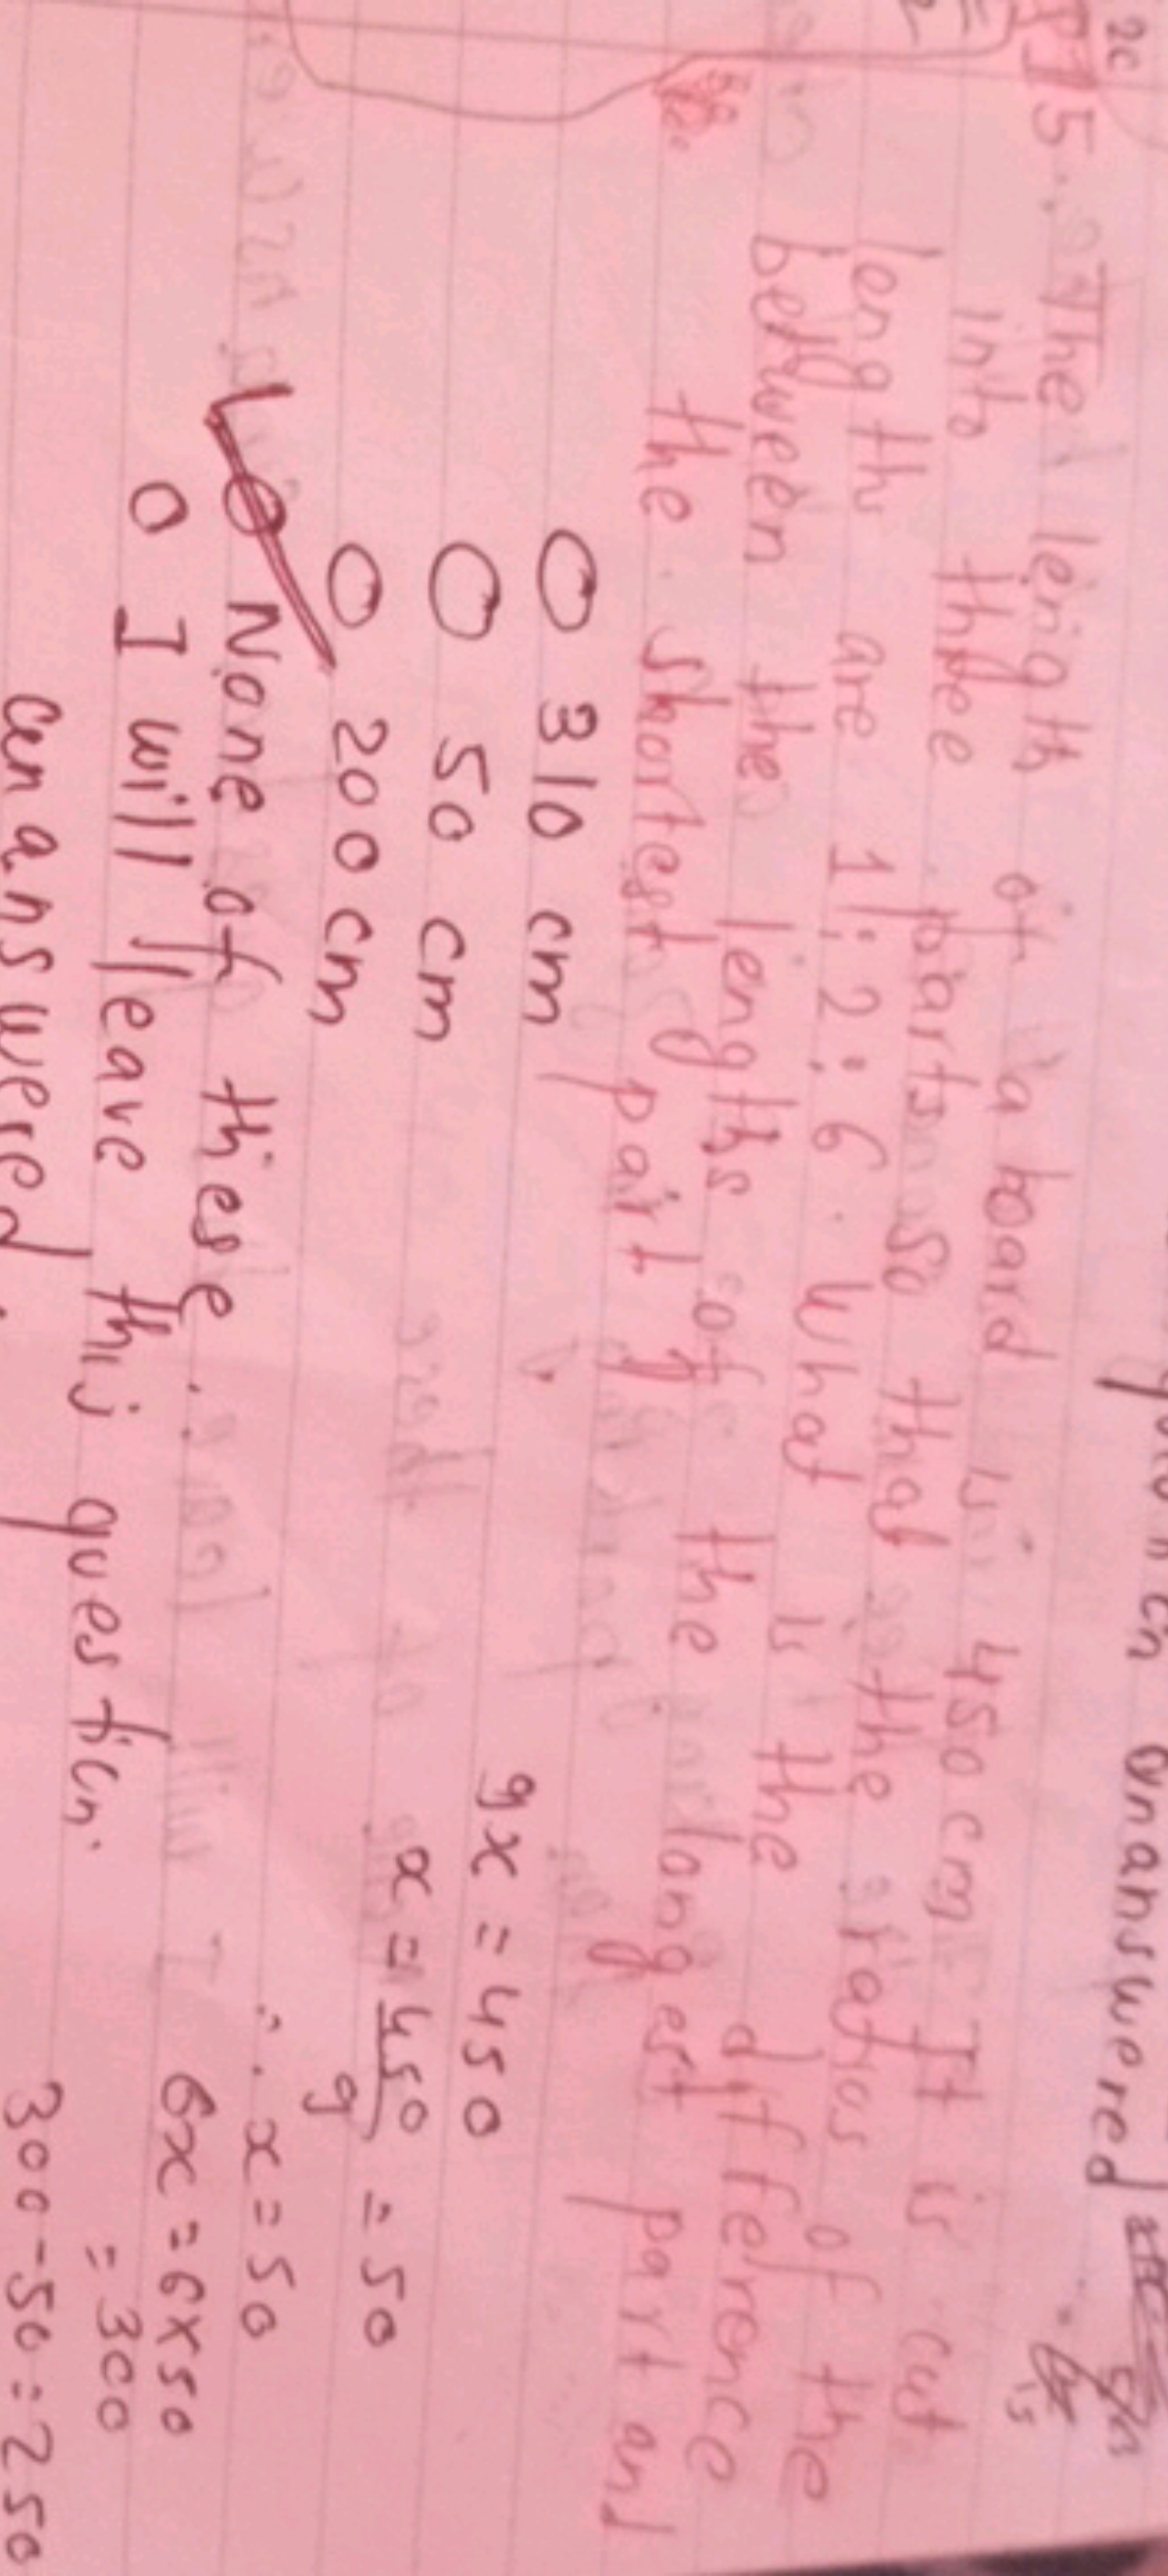 unanswered
15. The length of a board is 450 cm It is cut
into three parts so that the ratios of the
lengths are 1:2:6. What is the difference
between the lengths of the longest part and
the shortest part
O 310 cm
O 50 cm
O 200 cm
O None of these.
O I will leave this question
unanswered.
9x = 450
x = 450/9 = 50
∴ x = 50
6x = 6x50
= 300
300-50=250